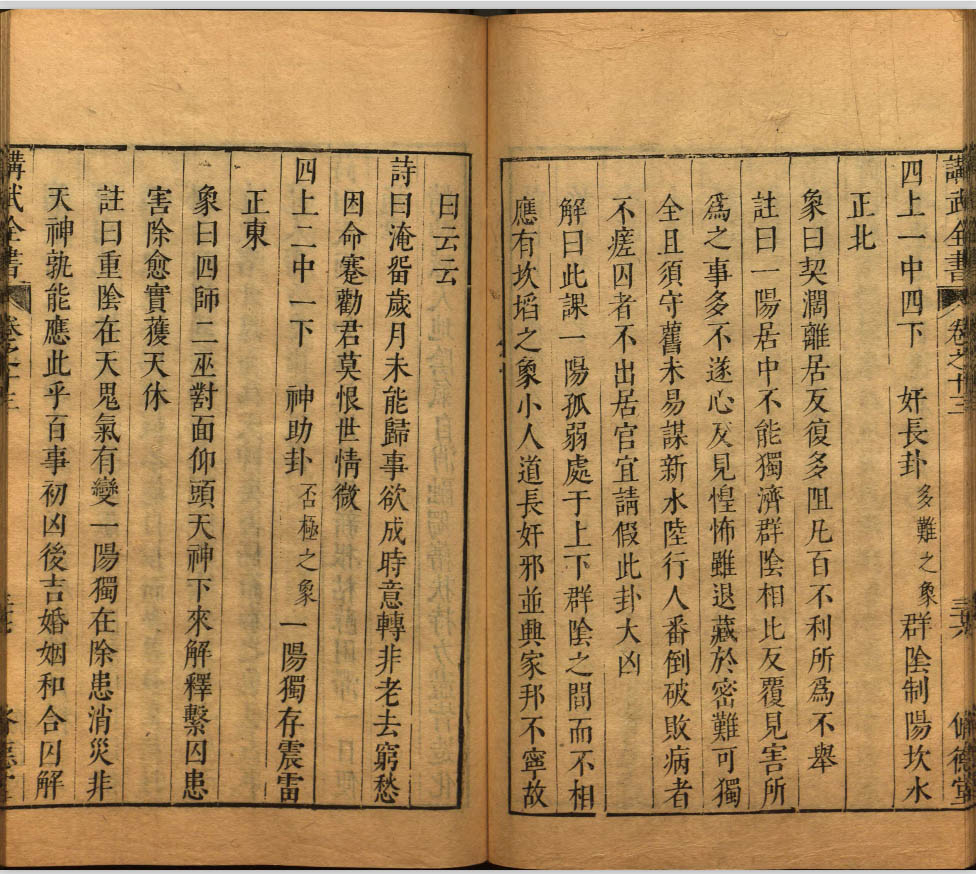 講武全書 卷之十三
四上一中四下 奸長卦 多難之象 群陰制陽坎水
正北
象曰契濶離居反復多阻凢百不利所爲不舉
註曰一陽居中不能獨濟群陰相比反覆見害所
爲之事多不遂心反見惶怖雖退藏於密難可獨
全且須守舊未易謀新水陸行人番倒破敗病者
不瘥囚者不出居官宜請假此卦大凶
解曰此課一陽孤弱處于上下群陰之間而不相
應有坎埳之象小人道長奸邪並興家邦不寧故
曰云云
詩曰淹畱歲月未能歸事欲成時意轉非老去窮愁
因命蹇勸君莫恨世情微
四上二中一下 神助卦 否極之象 一陽獨存震雷
正東
象曰四師二巫對面仰頭天神下來解釋繫囚患
害除愈實獲天休
註曰重陰在天鬼氣有變一陽獨在除患消災非
天神孰能應此乎百事初凶後吉婚姻和合囚解
講武全書 卷之十三